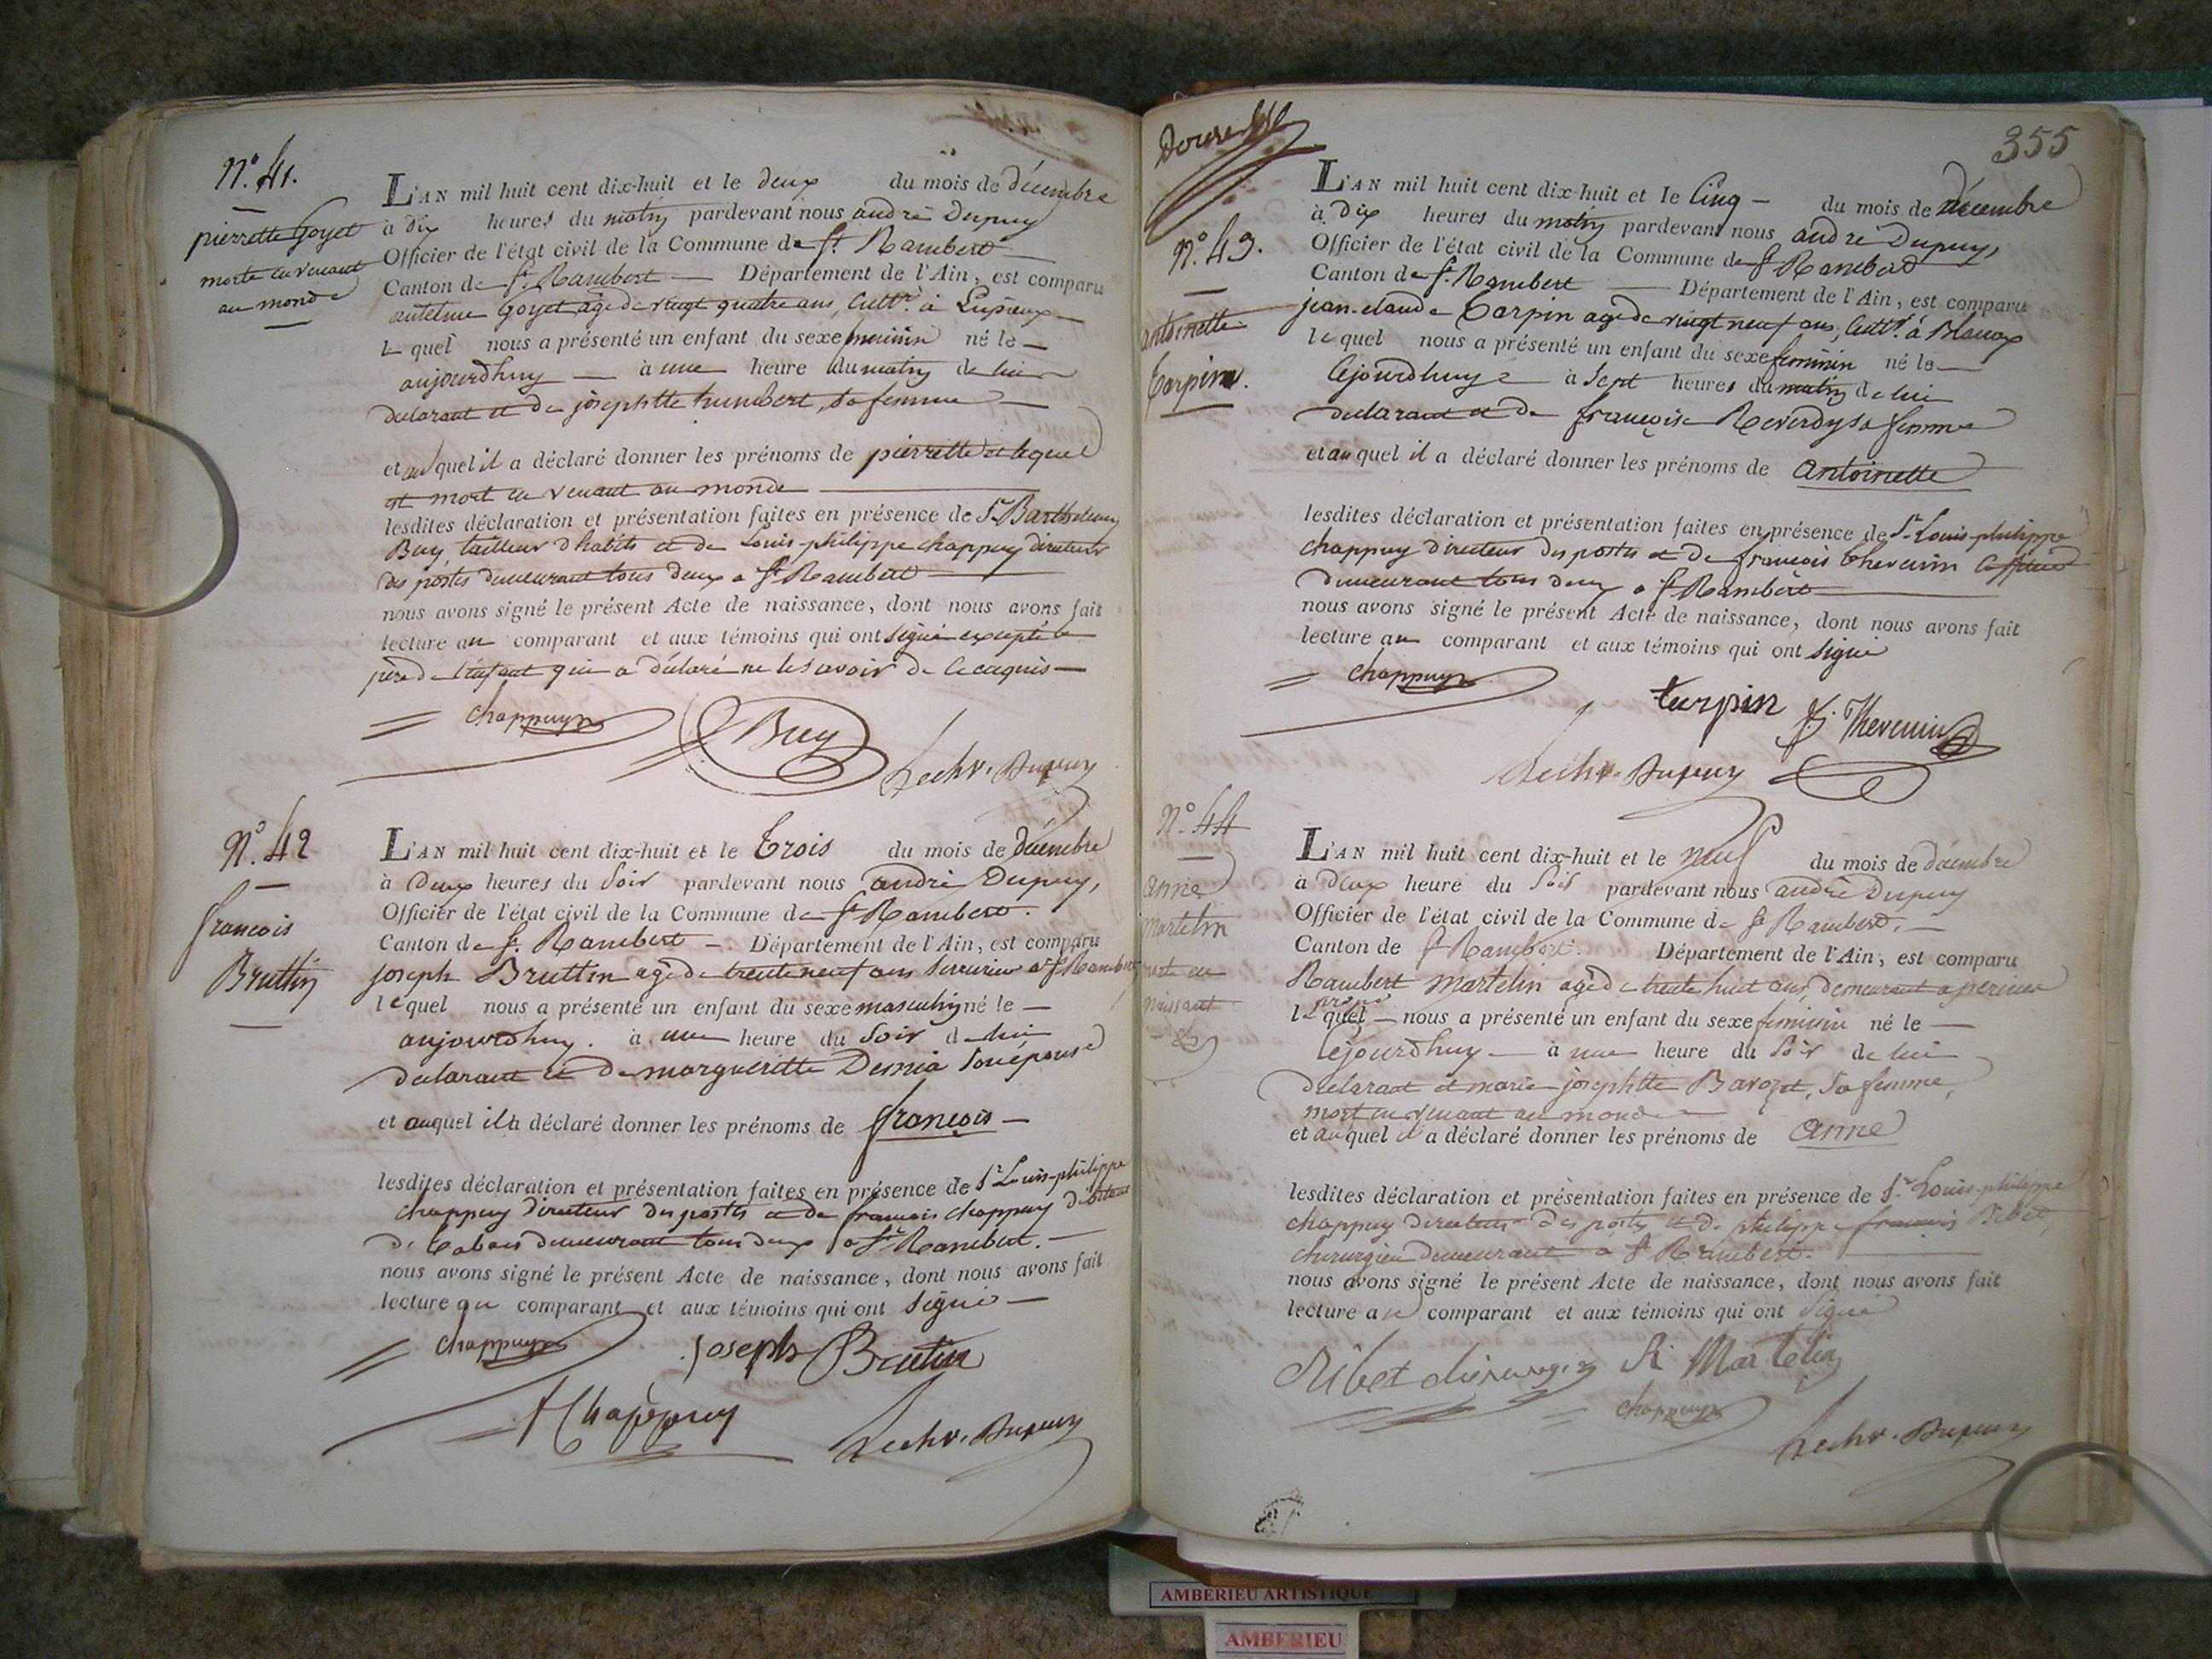 N.º 41.
pierrette Goyet
morte en venant
au monde
L'AN mil huit cent dix-huit et le deux du mois de décembre
à dix heures du matin pardevant nous andré Dupuy
Officier de l'état civil de la Commune de St. Rambert
Canton de St. Rambert Département de l'Ain, est comparu
antelme Goyet âgé de vingt quatre ans, Cultr. à Lupieux
lequel nous a présenté un enfant du sexe féminin né le
aujourdhuy à une heure du matin de lui
declarant et de josephtte humbert, sa femme
et auquel il a déclaré donner les prénoms de pierrette et lequel
est mort en venant au monde
lesdites déclaration et présentation faites en présence de Sr. Barthelemy
Buy, tailleur d'habits et de Louis-philippe chappuy directeur
des postes demeurant tous deux à St Rambert
nous avons signé le présent Acte de naissance, dont nous avons fait
lecture au comparant et aux témoins qui ont signé excepté le
père de l'enfant qui a déclaré ne le savoir de ce enquis
chappuy Buy
Dupuy
N.º 42
françois
Bruttin
L'AN mil huit cent dix-huit et le Trois du mois de décembre
à Deux heures du Soir pardevant nous andré Dupuy,
Officier de l'état civil de la Commune de St Rambert.
Canton de St. Rambert Département de l'Ain, est comparu
joseph Bruttin agé de trente neuf ans Serrurier à St Rambert
lequel nous a présenté un enfant du sexe masculin né le
aujourdhuy. à une heure du Soir de lui
declarant et de margueritte Demia Son épouse
et auquel il a déclaré donner les prénoms de françois
lesdites déclaration et présentation faites en présence de Sr Louis-philippe
chappuy Directeur des postes et de françois chappuy débitant
de Tabacs demeurant tous deux à St Rambert.
nous avons signé le présent Acte de naissance, dont nous avons fait
lecture au comparant et aux témoins qui ont signé
chappuy joseph Brutin
f Chappuy Dupuy
355
N.º 43.
antoinette
Tarpin.
L'AN mil huit cent dix-huit et le Cinq du mois de décembre
à Dix heures du matin pardevant nous andré Dupuy,
Officier de l'état civil de la Commune de St Rambert
Canton de St. Rambert Département de l'Ain, est comparu
jean-claude Tarpin agé de vingt neuf ans, Cultr. à Blanaz
lequel nous a présenté un enfant du sexe feminin né le
Cejourdhuy à Sept heures du matin de lui
declarant et de françoise Reverdy sa femme
et auquel il a déclaré donner les prénoms de antoinette
lesdites déclaration et présentation faites en présence de Sr. Louis-philippe
chappuy directeur des postes et de françois thevenin
demeurant tous deux à St Rambert
nous avons signé le présent Acte de naissance, dont nous avons fait
lecture au comparant et aux témoins qui ont signé
chappuy
turpin f. Thevenin
Dupuy
N.º 44
anne
martelin
morte en
naissant
L'AN mil huit cent dix-huit et le neuf du mois de décembre
à Deux heure du Soir pardevant nous andré Dupuy
Officier de l'état civil de la Commune de St Rambert.
Canton de St Rambert. Département de l'Ain, est comparu
Rambert martelin agé de trente huit ans, demeurant à
lequel nous a présenté un enfant du sexe feminin né le
Cejourdhuy à une heure du Soir de lui
declarant et marie josephtte Bavozet, sa femme,
mort en venant au monde
et auquel il a déclaré donner les prénoms de anne
lesdites déclaration et présentation faites en présence de Sr. Louis-philippe
chappuy directeur des postes et de philippe françois Ribet,
chirurgien demeurant à St Rambert.
nous avons signé le présent Acte de naissance, dont nous avons fait
lecture au comparant et aux témoins qui ont signé
Ribet chirurgien R Martelin
chappuy
Dupuy
AMBERIEU ARTISTIQUE
AMBERIEU